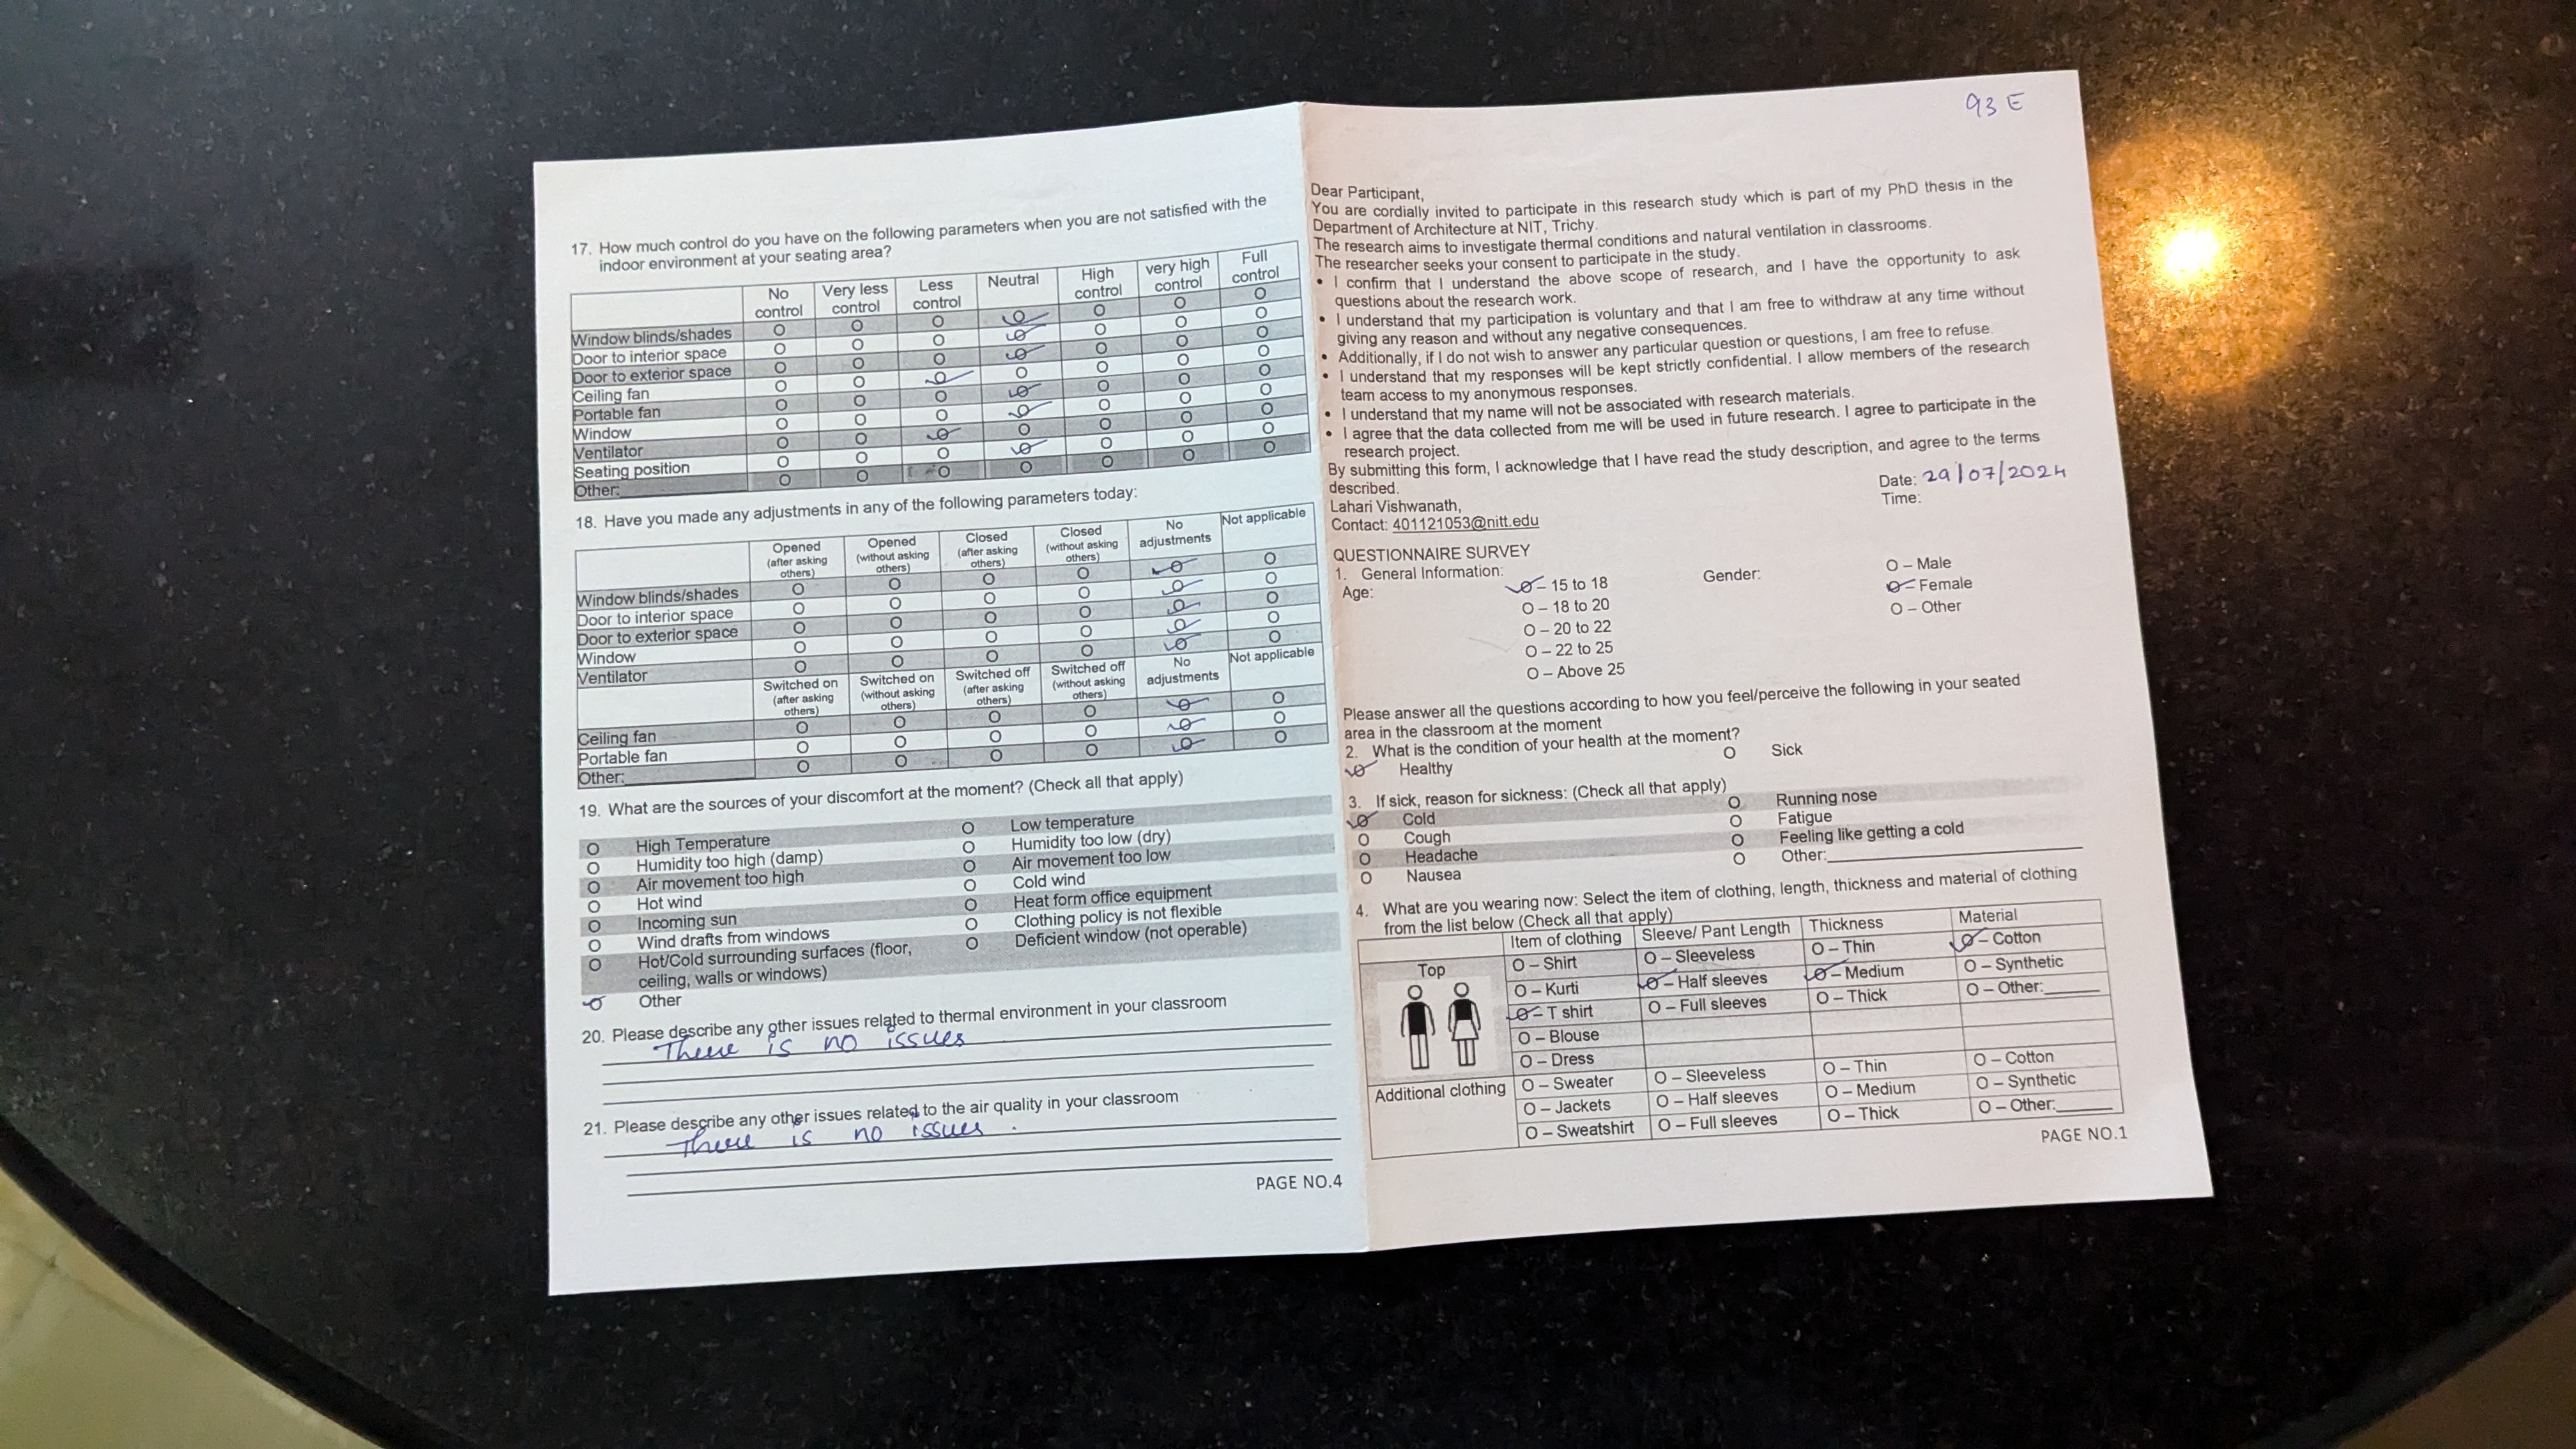 17. How much control do you have on the following parameters when you are not satisfied with the
indoor environment at your seating area?
No control | Very less control | Less control | Neutral | High control | very high control | Full control
Window blinds/shades
Door to interior space
Door to exterior space
Ceiling fan
Portable fan
Window
Ventilator
Seating position
Other:
18. Have you made any adjustments in any of the following parameters today:
Opened (after asking others) | Opened (without asking others) | Closed (after asking others) | Closed (without asking others) | No adjustments | Not applicable
Window blinds/shades
Door to interior space
Door to exterior space
Window
Ventilator
Switched on (after asking others) | Switched on (without asking others) | Switched off (after asking others) | Switched off (without asking others) | No adjustments | Not applicable
Ceiling fan
Portable fan
Other:
19. What are the sources of your discomfort at the moment? (Check all that apply)
O High Temperature O Low temperature
O Humidity too high (damp) O Humidity too low (dry)
O Air movement too high O Air movement too low
O Hot wind O Cold wind
O Incoming sun O Heat form office equipment
O Wind drafts from windows O Clothing policy is not flexible
O Hot/Cold surrounding surfaces (floor, O Deficient window (not operable)
ceiling, walls or windows)
O Other
20. Please describe any other issues related to thermal environment in your classroom
There is no issues
21. Please describe any other issues related to the air quality in your classroom
There is no issues .
PAGE NO.4
93 E
Dear Participant,
You are cordially invited to participate in this research study which is part of my PhD thesis in the
Department of Architecture at NIT, Trichy.
The research aims to investigate thermal conditions and natural ventilation in classrooms.
The researcher seeks your consent to participate in the study.
• I confirm that I understand the above scope of research, and I have the opportunity to ask
questions about the research work.
• I understand that my participation is voluntary and that I am free to withdraw at any time without
giving any reason and without any negative consequences.
• Additionally, if I do not wish to answer any particular question or questions, I am free to refuse.
• I understand that my responses will be kept strictly confidential. I allow members of the research
team access to my anonymous responses.
• I understand that my name will not be associated with research materials.
• I agree that the data collected from me will be used in future research. I agree to participate in the
research project.
By submitting this form, I acknowledge that I have read the study description, and agree to the terms
described.
Date: 29/07/2024
Lahari Vishwanath,
Time:
Contact: 401121053@nitt.edu
QUESTIONNAIRE SURVEY
1. General Information:
Age:
O – 15 to 18
O – 18 to 20
O – 20 to 22
O – 22 to 25
O – Above 25
Gender:
O – Male
O – Female
O – Other
Please answer all the questions according to how you feel/perceive the following in your seated
area in the classroom at the moment
2. What is the condition of your health at the moment?
O Healthy O Sick
3. If sick, reason for sickness: (Check all that apply)
O Cold O Running nose
O Cough O Fatigue
O Headache O Feeling like getting a cold
O Nausea O Other:
4. What are you wearing now: Select the item of clothing, length, thickness and material of clothing
from the list below (Check all that apply)
Item of clothing | Sleeve/ Pant Length | Thickness | Material
Top
O – Shirt | O – Sleeveless | O – Thin | O – Cotton
O – Kurti | O – Half sleeves | O – Medium | O – Synthetic
O – T shirt | O – Full sleeves | O – Thick | O – Other:
O – Blouse
O – Dress
Additional clothing
O – Sweater | O – Sleeveless | O – Thin | O – Cotton
O – Jackets | O – Half sleeves | O – Medium | O – Synthetic
O – Sweatshirt | O – Full sleeves | O – Thick | O – Other:
PAGE NO.1